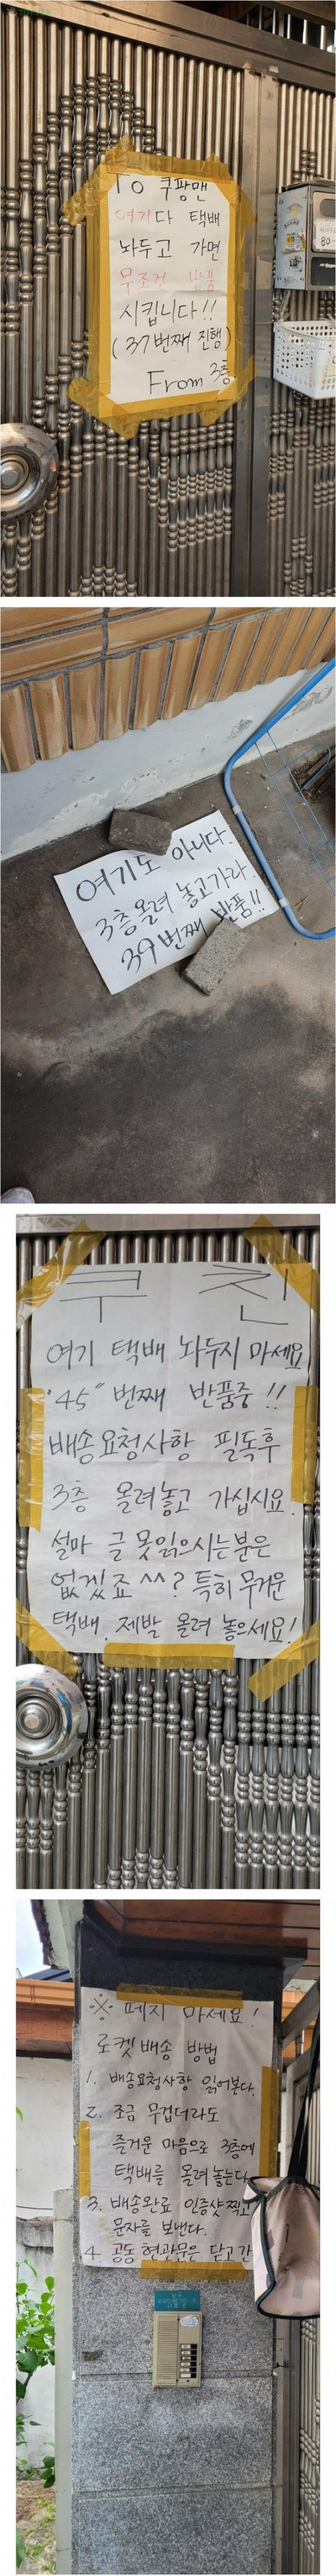 To 쿠팡맨
여기다 택배
놔두고 가면
무조건 반품
시킵니다!!
(37번째 진행)
From 3층
80-
여기도 아니다.
3층올려 놓고가라.
39번째 반품!!
쿠친
여기 택배 놔두지 마세요
"45" 번째 반품중!!
배송요청사항 필독후
3층 올려놓고 가십시요.
설마 글 못읽으시는분은
없겠죠^^? 특히 무거운
택배. 제발 올려 놓으세요!
※ 떼지 마세요!
로켓배송 방법
1. 배송요청사항 읽어본다.
2. 조금 무겁더라도
즐거운 마음으로 3층에
택배를 올려놓는다
3. 배송완료 인증샷찍고
문자를 보낸다.
4. 공동현관문은 닫고간